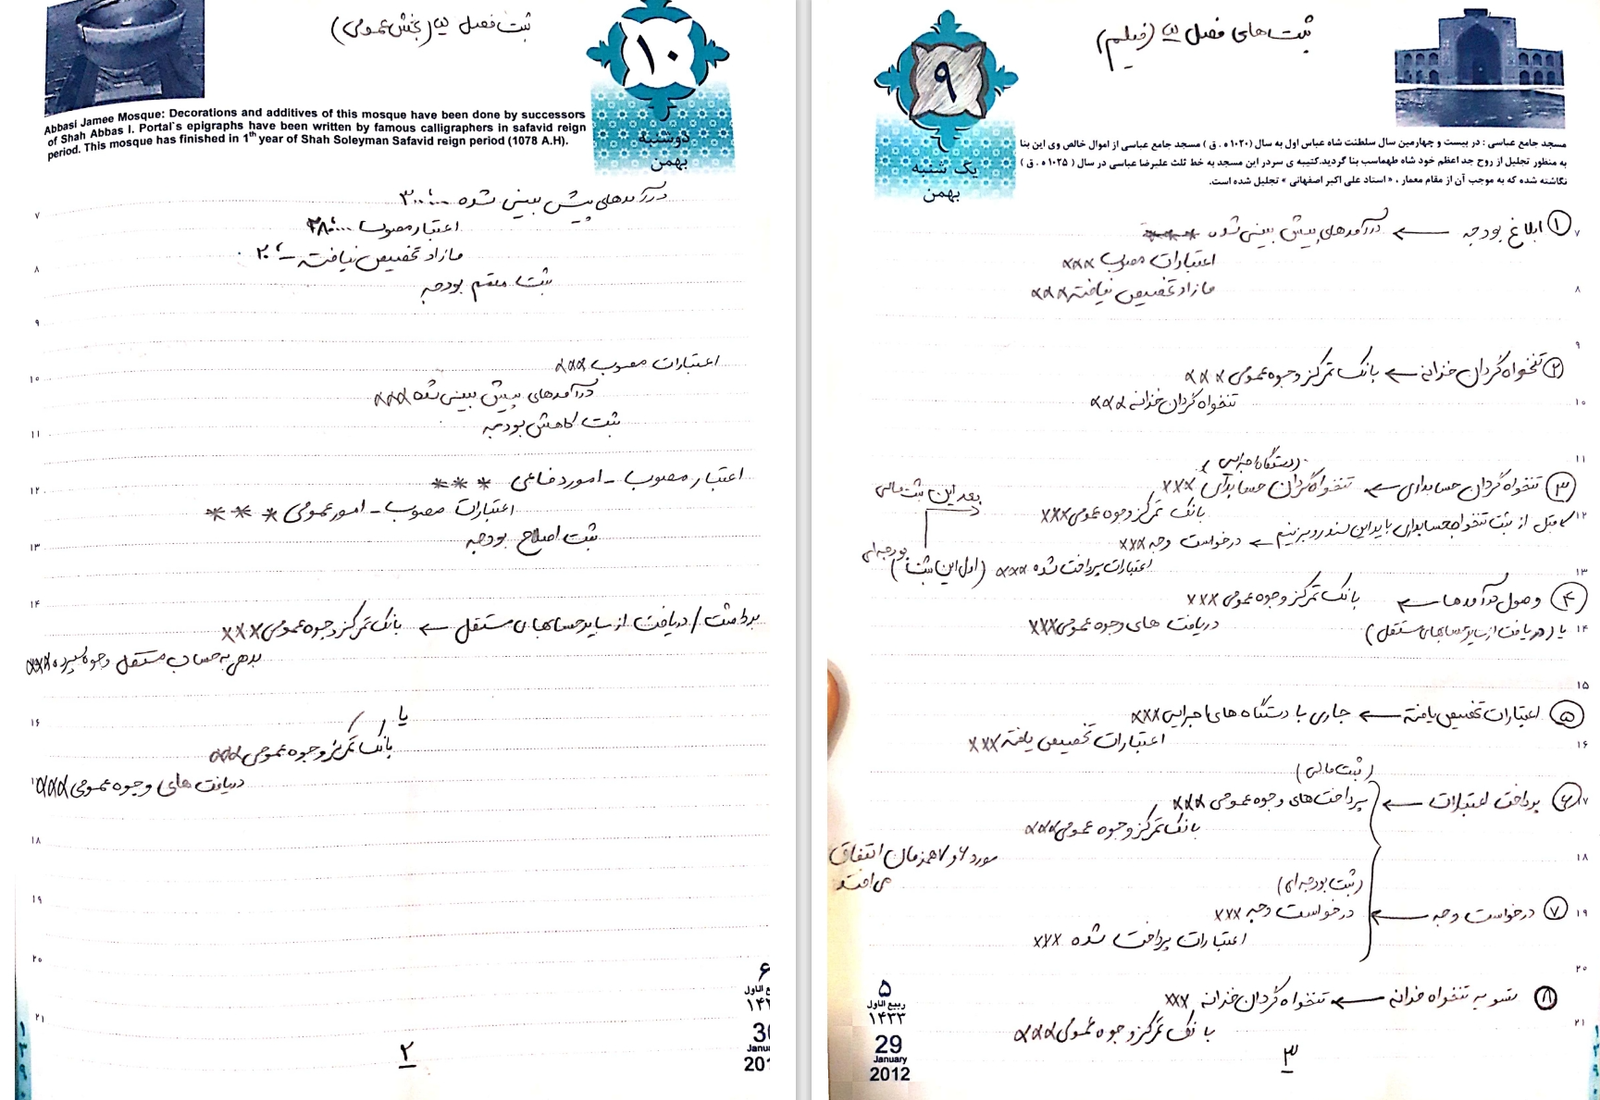 ثبت های فصل سه (فیلم)
۹
یک شنبه
بهمن
مسجد جامع عباسی : در بیست و چهارمین سال سلطنت شاه عباس اول به سال (۱۰۲۰ ه . ق ) مسجد جامع عباسی از اموال خالص وی این بنا
به منظور تجلیل از روح جد اعظم خود شاه طهماسب بنا گردید.کتیبه ی سردر این مسجد به خط ثلث علیرضا عباسی در سال ( ۱۰۲۵ ه . ق )
نگاشته شده که به موجب آن از مقام معمار ، « استاد علی اکبر اصفهانی » تجلیل شده است.
۷
۱ ابلاغ بودجه ← درآمدهای پیش بینی شده ***
اعتبارات مصوب xxx
۸
مازاد تخصیص نیافته xxx
۹
۲ تنخواه گردان خزانه ← بانک تمرکز وجوه عمومی xxx
۱۰
تنخواه گردان خزانه xxx
۱۱
(دستگاه اجرایی)
۳ تنخواه گردان حسابداری ← تنخواه گردان حسابداری xxx
بعد این ثبت مالی
بانک تمرکز وجوه عمومی xxx
۱۲
قبل از ثبت تنخواه حسابداری باید این سند رو بزنیم ← درخواست وجه xxx
۱۳
اعتبارات پرداخت شده xxx (اول این ثبت بودجه ای)
۴ وصول درآمدها ← بانک تمرکز وجوه عمومی xxx
۱۴
یا (دریافت از سایر حسابهای مستقل) دریافت های وجوه عمومی xxx
۱۵
۵ اعتبارات تخصیص یافته ← جاری با دستگاه های اجرایی xxx
۱۶
اعتبارات تخصیص یافته xxx
(ثبت مالی)
۱۷
۶ پرداخت اعتبارات ← پرداخت های وجوه عمومی xxx
بانک تمرکز وجوه عمومی xxx
۱۸
مورد ۶ و ۷ همزمان اتفاق
می افتد
(ثبت بودجه ای)
۱۹
۷ درخواست وجه ← درخواست وجه xxx
اعتبارات پرداخت شده xxx
۲۰
۸ تسویه تنخواه خزانه ← تنخواه گردان خزانه xxx
۲۱
بانک تمرکز وجوه عمومی xxx
۳
۵
ربیع الاول
۱۴۳۳
29
January
2012
ثبت فصل سه (بخش عمومی)
۱۰
دوشنبه
بهمن
Abbasi Jamee Mosque: Decorations and additives of this mosque have been done by successors
of Shah Abbas I. Portal`s epigraphs have been written by famous calligraphers in safavid reign
period. This mosque has finished in 1th year of Shah Soleyman Safavid reign period (1078 A.H).
۷
درآمدهای پیش بینی شده
اعتبار مصوب
۸
مازاد تخصیص نیافته
ثبت متمم بودجه
۹
۱۰
اعتبارات مصوب xxx
درآمدهای پیش بینی شده xxx
۱۱
ثبت کاهش بودجه
۱۲
اعتبار مصوب - امور دفاعی ***
اعتبارات مصوب - امور عمومی ***
۱۳
ثبت اصلاح بودجه
۱۴
برداشت/دریافت از سایر حسابهای مستقل ← بانک تمرکز وجوه عمومی xxx
بدهی به حساب مستقل وجوه سپرده xxx
یا
۱۶
بانک تمرکز وجوه عمومی xxx
دریافت های وجوه عمومی xxx
۱۸
۱۹
۲۰
۲۱
۲